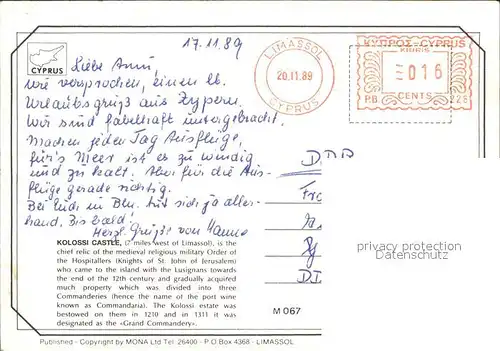 17.11.89
CYPRUS
LIMASSOL
20.11.89
CYPRUS
ΚΥΠΡΟΣ-CYPRUS
KIBRIS
016
P.B. CENTS 228
Liebe Anni,
wie versprochen, einen lb.
Urlaubsgruß aus Zypern.
Wir sind fabelhaft untergebracht.
Machen jeden Tag Ausflüge,
für's Meer ist es zu windig
und zu kalt. Aber für die Aus-
flüge gerade richtig.
Bei Euch in Bln. tut sich ja aller-
hand. Bis bald!
Herzl. Grüße von Hanne
KOLOSSI CASTLE, (7 miles west of Limassol), is the
chief relic of the medieval religious military Order of
the Hospitallers (Knights of St. John of Jerusalem)
who came to the island with the Lusignans towards
the end of the 12th century and gradually acquired
much property which was divided into three
Commanderies (hence the name of the port wine
known as Commandaria). The Kolossi estate was
bestowed on them in 1210 and in 1311 it was
designated as the «Grand Commandery».
DDR
Fr
privacy protection
Datenschutz
M 067
Published - Copyright by MONA Ltd Tel. 26400 - P.O.Box 4368 - LIMASSOL